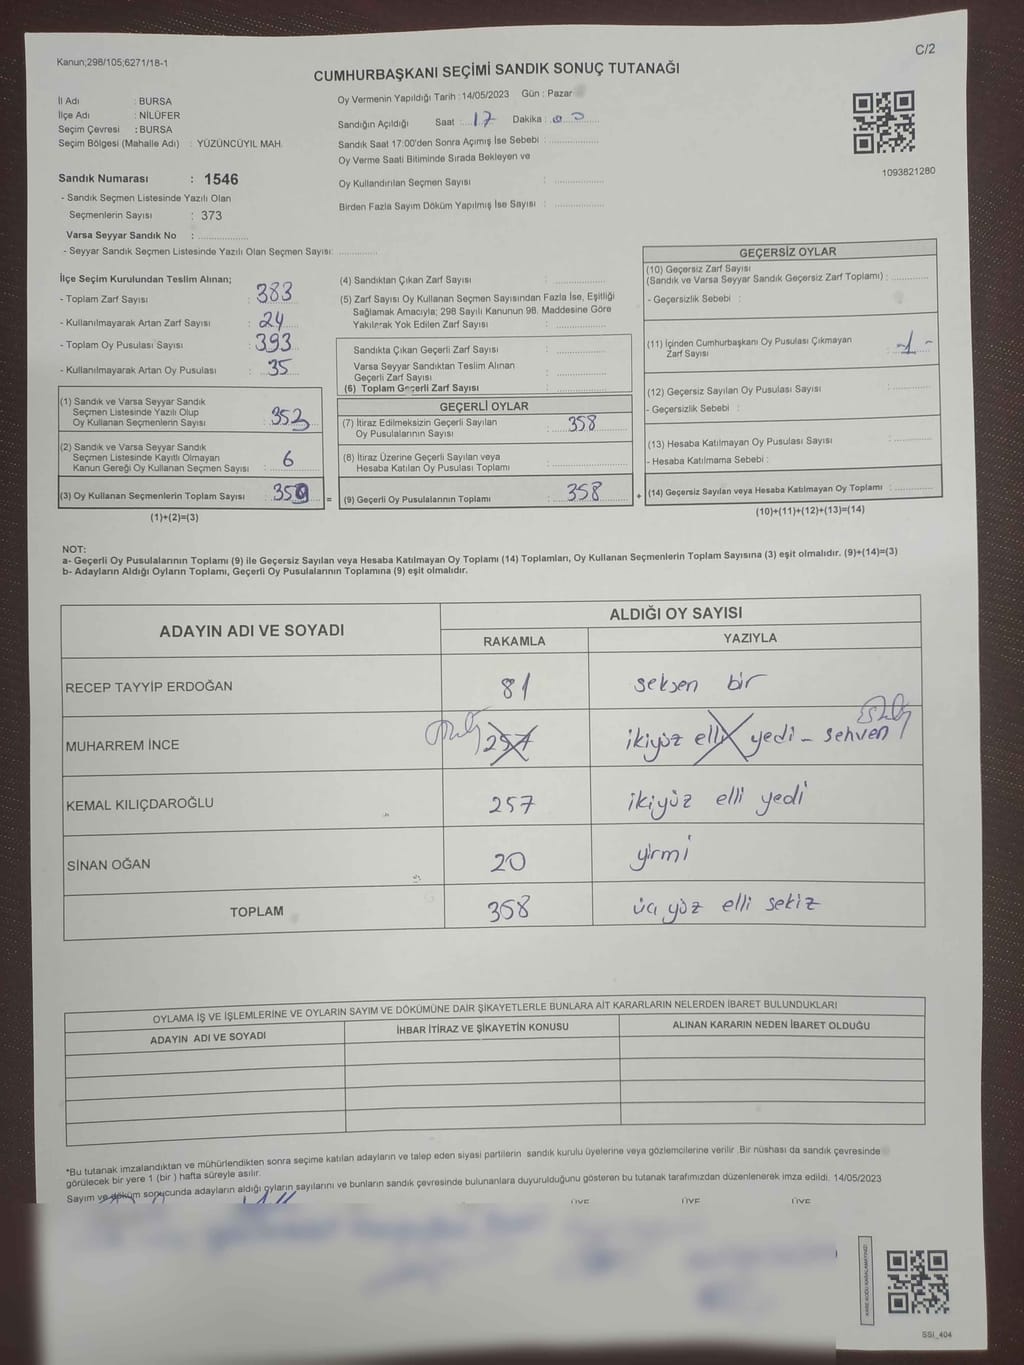 Kanun;298/105;6271/18-1
C/2
CUMHURBAŞKANI SEÇİMİ SANDIK SONUÇ TUTANAĞI
İl Adı : BURSA
İlçe Adı : NİLÜFER
Seçim Çevresi : BURSA
Seçim Bölgesi (Mahalle Adı) : YÜZÜNCÜYIL MAH.
Sandık Numarası : 1546
- Sandık Seçmen Listesinde Yazılı Olan
Seçmenlerin Sayısı : 373
Varsa Seyyar Sandık No : ..................
- Seyyar Sandık Seçmen Listesinde Yazılı Olan Seçmen Sayısı: .............
Oy Vermenin Yapıldığı Tarih : 14/05/2023 Gün : Pazar
Sandığın Açıldığı Saat : 17 Dakika : 00
Sandık Saat 17:00'den Sonra Açımış İse Sebebi : ..................
Oy Verme Saati Bitiminde Sırada Bekleyen ve
Oy Kullandırılan Seçmen Sayısı : ..................
Birden Fazla Sayım Döküm Yapılmış İse Sayısı : ..................
1093821280
İlçe Seçim Kurulundan Teslim Alınan;
- Toplam Zarf Sayısı : 383
- Kullanılmayarak Artan Zarf Sayısı : 24
- Toplam Oy Pusulası Sayısı : 393
- Kullanılmayarak Artan Oy Pusulası : 35
(1) Sandık ve Varsa Seyyar Sandık
Seçmen Listesinde Yazılı Olup
Oy Kullanan Seçmenlerin Sayısı : 353
(2) Sandık ve Varsa Seyyar Sandık
Seçmen Listesinde Kayıtlı Olmayan
Kanun Gereği Oy Kullanan Seçmen Sayısı : 6
(3) Oy Kullanan Seçmenlerin Toplam Sayısı : 359 =
(1)+(2)=(3)
(4) Sandıktan Çıkan Zarf Sayısı : ..................
(5) Zarf Sayısı Oy Kullanan Seçmen Sayısından Fazla İse, Eşitliği
Sağlamak Amacıyla; 298 Sayılı Kanunun 98. Maddesine Göre
Yakılarak Yok Edilen Zarf Sayısı : ..................
Sandıkta Çıkan Geçerli Zarf Sayısı : ..................
Varsa Seyyar Sandıktan Teslim Alınan
Geçerli Zarf Sayısı : ..................
(6) Toplam Geçerli Zarf Sayısı : ..................
GEÇERLİ OYLAR
(7) İtiraz Edilmeksizin Geçerli Sayılan
Oy Pusulalarının Sayısı : 358
(8) İtiraz Üzerine Geçerli Sayılan veya
Hesaba Katılan Oy Pusulası Toplamı : ..................
(9) Geçerli Oy Pusulalarının Toplamı : 358 +
GEÇERSİZ OYLAR
(10) Geçersiz Zarf Sayısı
(Sandık ve Varsa Seyyar Sandık Geçersiz Zarf Toplamı) : .............
- Geçersizlik Sebebi :
(11) İçinden Cumhurbaşkanı Oy Pusulası Çıkmayan
Zarf Sayısı : -1-
(12) Geçersiz Sayılan Oy Pusulası Sayısı : .............
- Geçersizlik Sebebi :
(13) Hesaba Katılmayan Oy Pusulası Sayısı : .............
- Hesaba Katılmama Sebebi :
(14) Geçersiz Sayılan veya Hesaba Katılmayan Oy Toplamı : .............
(10)+(11)+(12)+(13)=(14)
NOT:
a- Geçerli Oy Pusulalarının Toplamı (9) ile Geçersiz Sayılan veya Hesaba Katılmayan Oy Toplamı (14) Toplamları, Oy Kullanan Seçmenlerin Toplam Sayısına (3) eşit olmalıdır. (9)+(14)=(3)
b- Adayların Aldığı Oyların Toplamı, Geçerli Oy Pusulalarının Toplamına (9) eşit olmalıdır.
ADAYIN ADI VE SOYADI
ALDIĞI OY SAYISI
RAKAMLA YAZIYLA
RECEP TAYYİP ERDOĞAN 81 seksen bir
MUHARREM İNCE 257 ikiyüz elli yedi - sehven
KEMAL KILIÇDAROĞLU 257 ikiyüz elli yedi
SİNAN OĞAN 20 yirmi
TOPLAM 358 üç yüz elli sekiz
OYLAMA İŞ VE İŞLEMLERİNE VE OYLARIN SAYIM VE DÖKÜMÜNE DAİR ŞİKAYETLERLE BUNLARA AİT KARARLARIN NELERDEN İBARET BULUNDUKLARI
ADAYIN ADI VE SOYADI İHBAR İTİRAZ VE ŞİKAYETİN KONUSU ALINAN KARARIN NEDEN İBARET OLDUĞU
*Bu tutanak imzalandıktan ve mühürlendikten sonra seçime katılan adayların ve talep eden siyasi partilerin sandık kurulu üyelerine veya gözlemcilerine verilir .Bir nüshası da sandık çevresinde
görülecek bir yere 1 (bir ) hafta süreyle asılır.
Sayım ve döküm sonucunda adayların aldığı oyların sayılarını ve bunların sandık çevresinde bulunanlara duyurulduğunu gösteren bu tutanak tarafımızdan düzenlenerek imza edildi. 14/05/2023
ÜYE ÜYE ÜYE
SSI_404